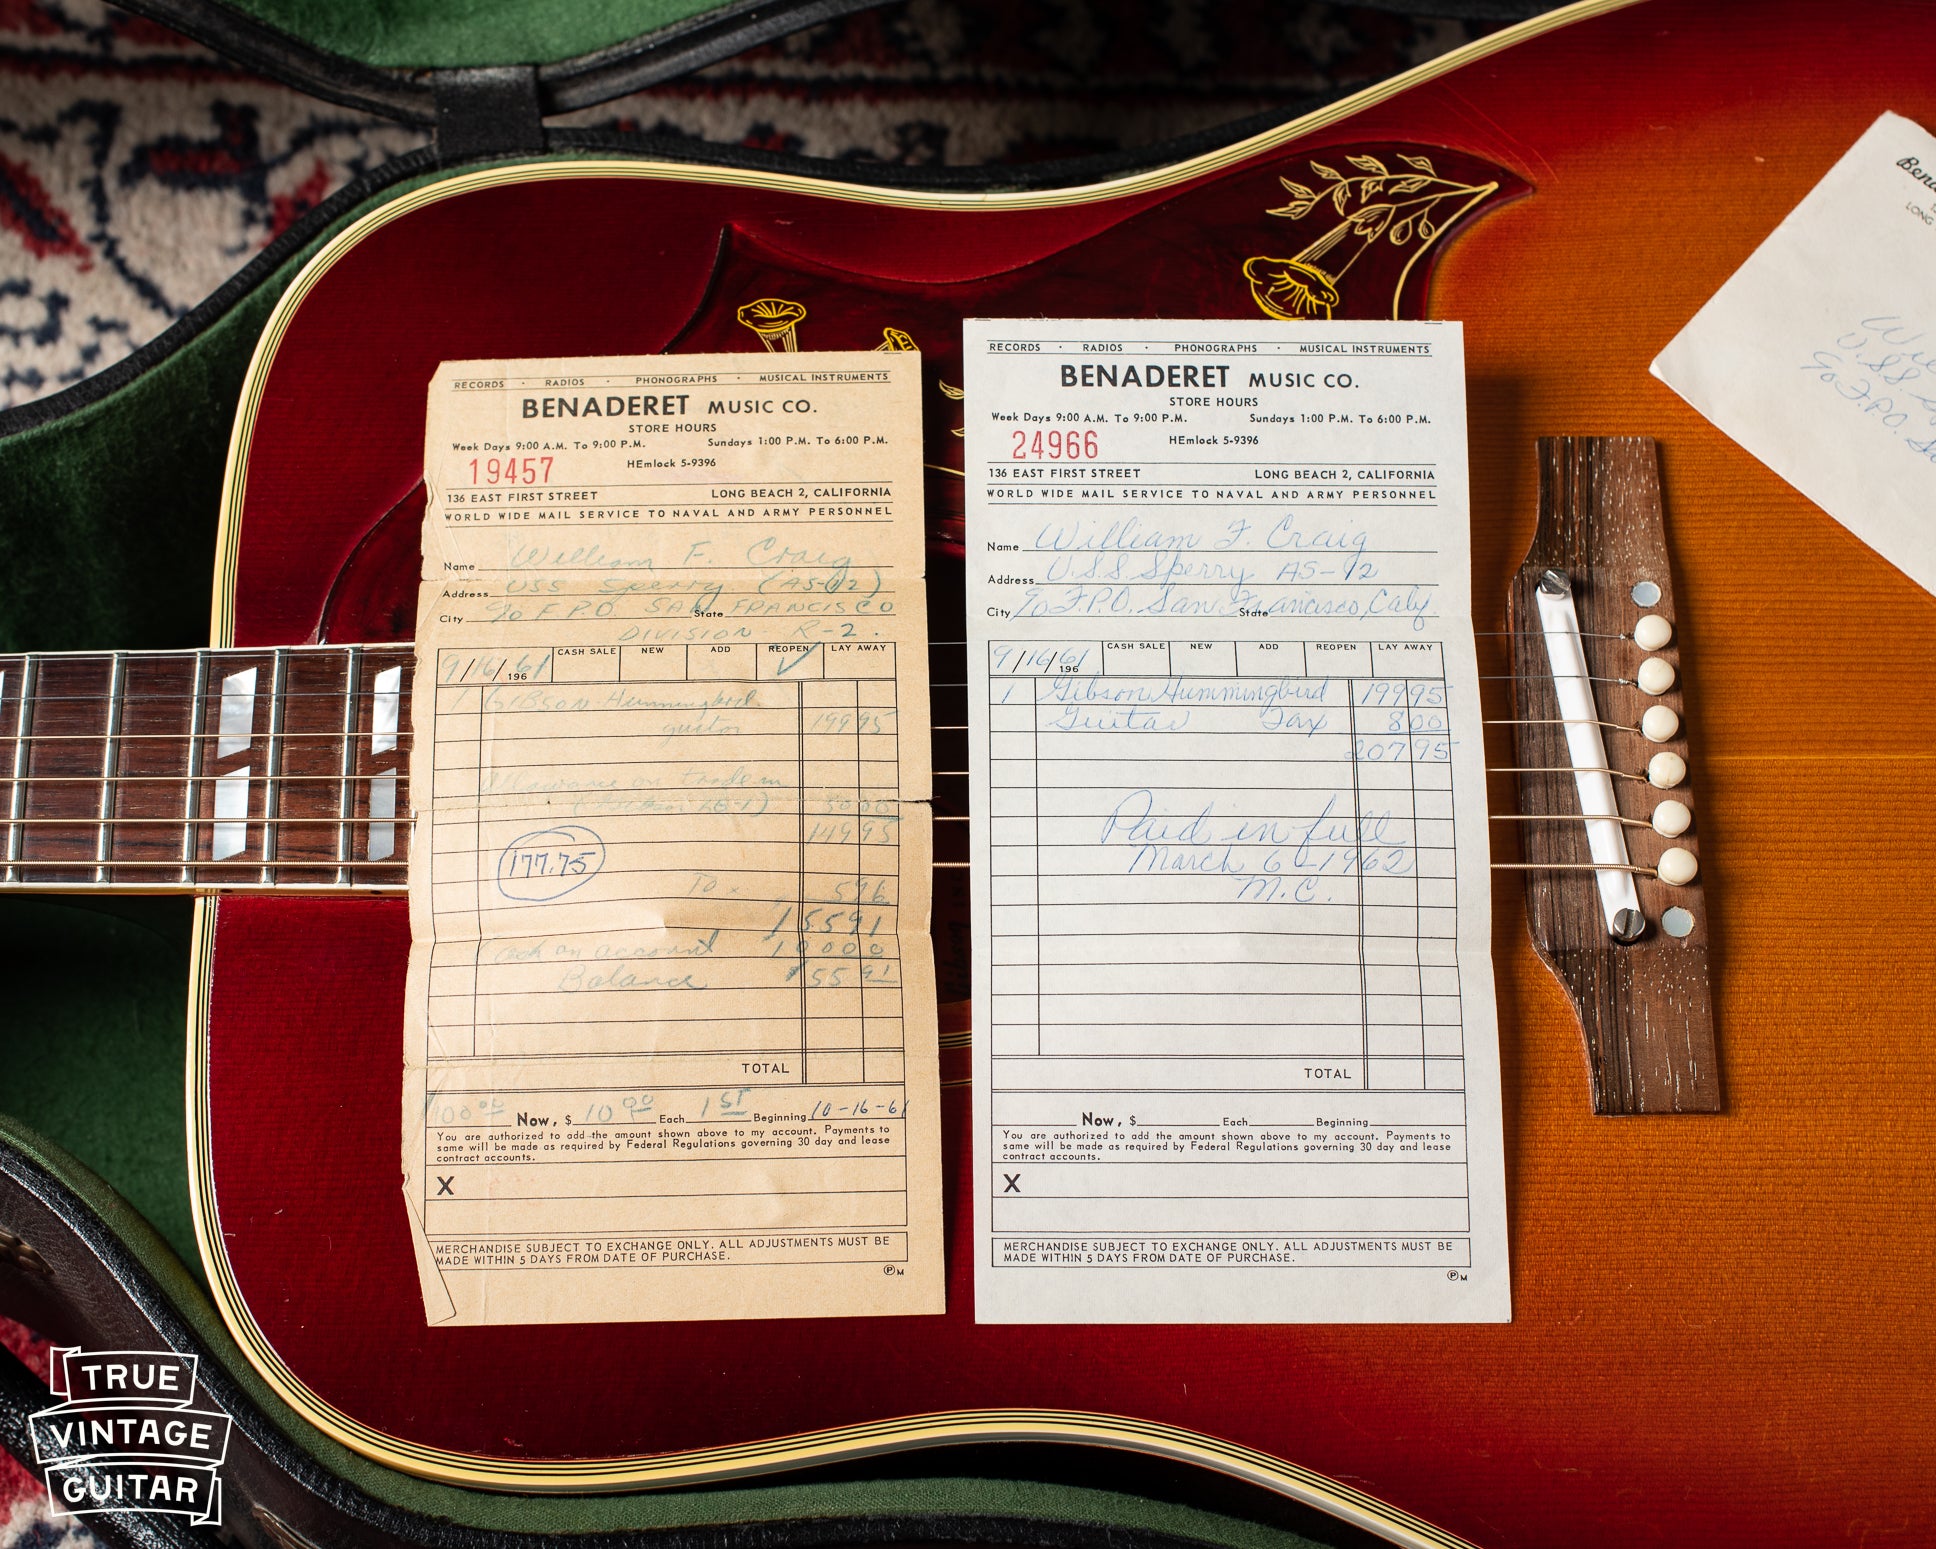 RECORDS · RADIOS · PHONOGRAPHS · MUSICAL INSTRUMENTS
BENADERET MUSIC CO.
STORE HOURS
Week Days 9:00 A.M. To 9:00 P.M. Sundays 1:00 P.M. To 6:00 P.M.
19457 HEmlock 5-9396
136 EAST FIRST STREET LONG BEACH 2, CALIFORNIA
WORLD WIDE MAIL SERVICE TO NAVAL AND ARMY PERSONNEL
Name William F. Craig
Address USS Sperry (AS-12)
City c/o F.P.O. SAN State FRANCISCO
DIVISION R-2.
9/16/61 196 CASH SALE NEW ADD REOPEN ✓ LAY AWAY
1 GIBSON Hummingbird
guitar 199 95
Allowance on trade in
50 00
149 95
177.75
Tax 5 96
155 91
Cash on account 100 00
Balance $55 91
TOTAL
100 00 Now, $ 10 00 Each 1 ST Beginning 10-16-61
You are authorized to add the amount shown above to my account. Payments to
same will be made as required by Federal Regulations governing 30 day and lease
contract accounts.
X
MERCHANDISE SUBJECT TO EXCHANGE ONLY. ALL ADJUSTMENTS MUST BE
MADE WITHIN 5 DAYS FROM DATE OF PURCHASE.
Ⓟ M
RECORDS · RADIOS · PHONOGRAPHS · MUSICAL INSTRUMENTS
BENADERET MUSIC CO.
STORE HOURS
Week Days 9:00 A.M. To 9:00 P.M. Sundays 1:00 P.M. To 6:00 P.M.
24966 HEmlock 5-9396
136 EAST FIRST STREET LONG BEACH 2, CALIFORNIA
WORLD WIDE MAIL SERVICE TO NAVAL AND ARMY PERSONNEL
Name William F. Craig
Address U.S.S. Sperry AS-12
City c/o F.P.O. San Francisco, Calif. State
9/16/61 196 CASH SALE NEW ADD REOPEN LAY AWAY
1 Gibson Hummingbird 199 95
Guitar Tax 8 00
207 95
Paid in full
March 6-1962
M.C.
TOTAL
Now, $ Each Beginning
You are authorized to add the amount shown above to my account. Payments to
same will be made as required by Federal Regulations governing 30 day and lease
contract accounts.
X
MERCHANDISE SUBJECT TO EXCHANGE ONLY. ALL ADJUSTMENTS MUST BE
MADE WITHIN 5 DAYS FROM DATE OF PURCHASE.
Ⓟ M
LONG
U.S.S
c/o F.P.O.
TRUE
VINTAGE
GUITAR